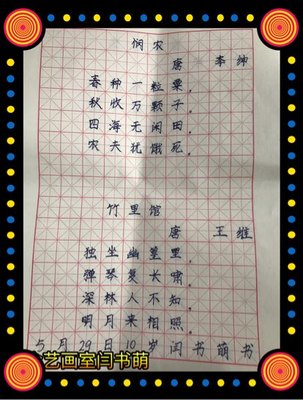 悯农
唐 李绅
春种一粒粟，
秋收万颗子，
四海无闲田，
农夫犹饿死，
竹里馆
唐 王维
独坐幽篁里，
弹琴复长啸，
深林人不知，
明月来相照，
5月29日10岁闫书萌书
艺画室闫书萌